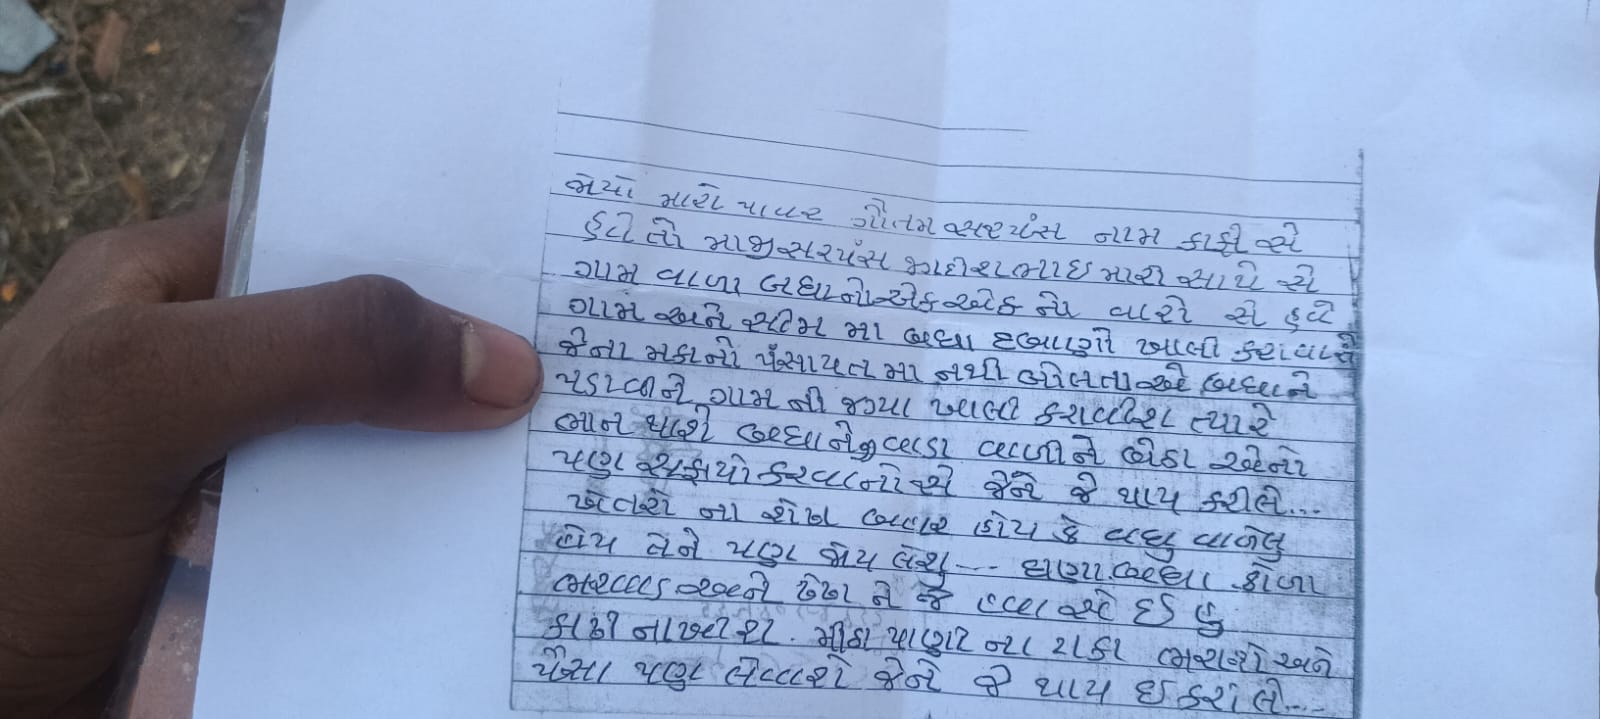 જોયો મારો પાવર ગૌતમ સરપંચ નામ કાફી સે
હવે તો માજી સરપંચ જગદીશભાઇ મારી સાથે સે
ગામ વાળા બધાનો એક એક નો વારો સે હવે
ગામ અને સીમ મા બધા દબાણો ખાલી કરાવાને
જેના મકાનો પંચાયત મા નથી બોલતા એ બધાને
પડાવીને ગામ ની જગ્યા ખાલી કરાવીશ ત્યારે
ભાન થાશે બધાને વાડા વાળીને બેઠા એનો
પણ સફાયો કરવાનો સે જેને જે થાય કરીલે...
ખેતરો ના શેઢા બહાર હોય કે વધુ વાળેલુ
હોય તેને પણ જોય લેશુ... ઘણા બધા ફોળા
અને જે ઈ હુ
કાઢી નાખીશ. મીઠા પાણી ના ટાકા ભરાશે અને
પૈસા પણ લેવાશે જેને જે થાય ઇ કરી લે....